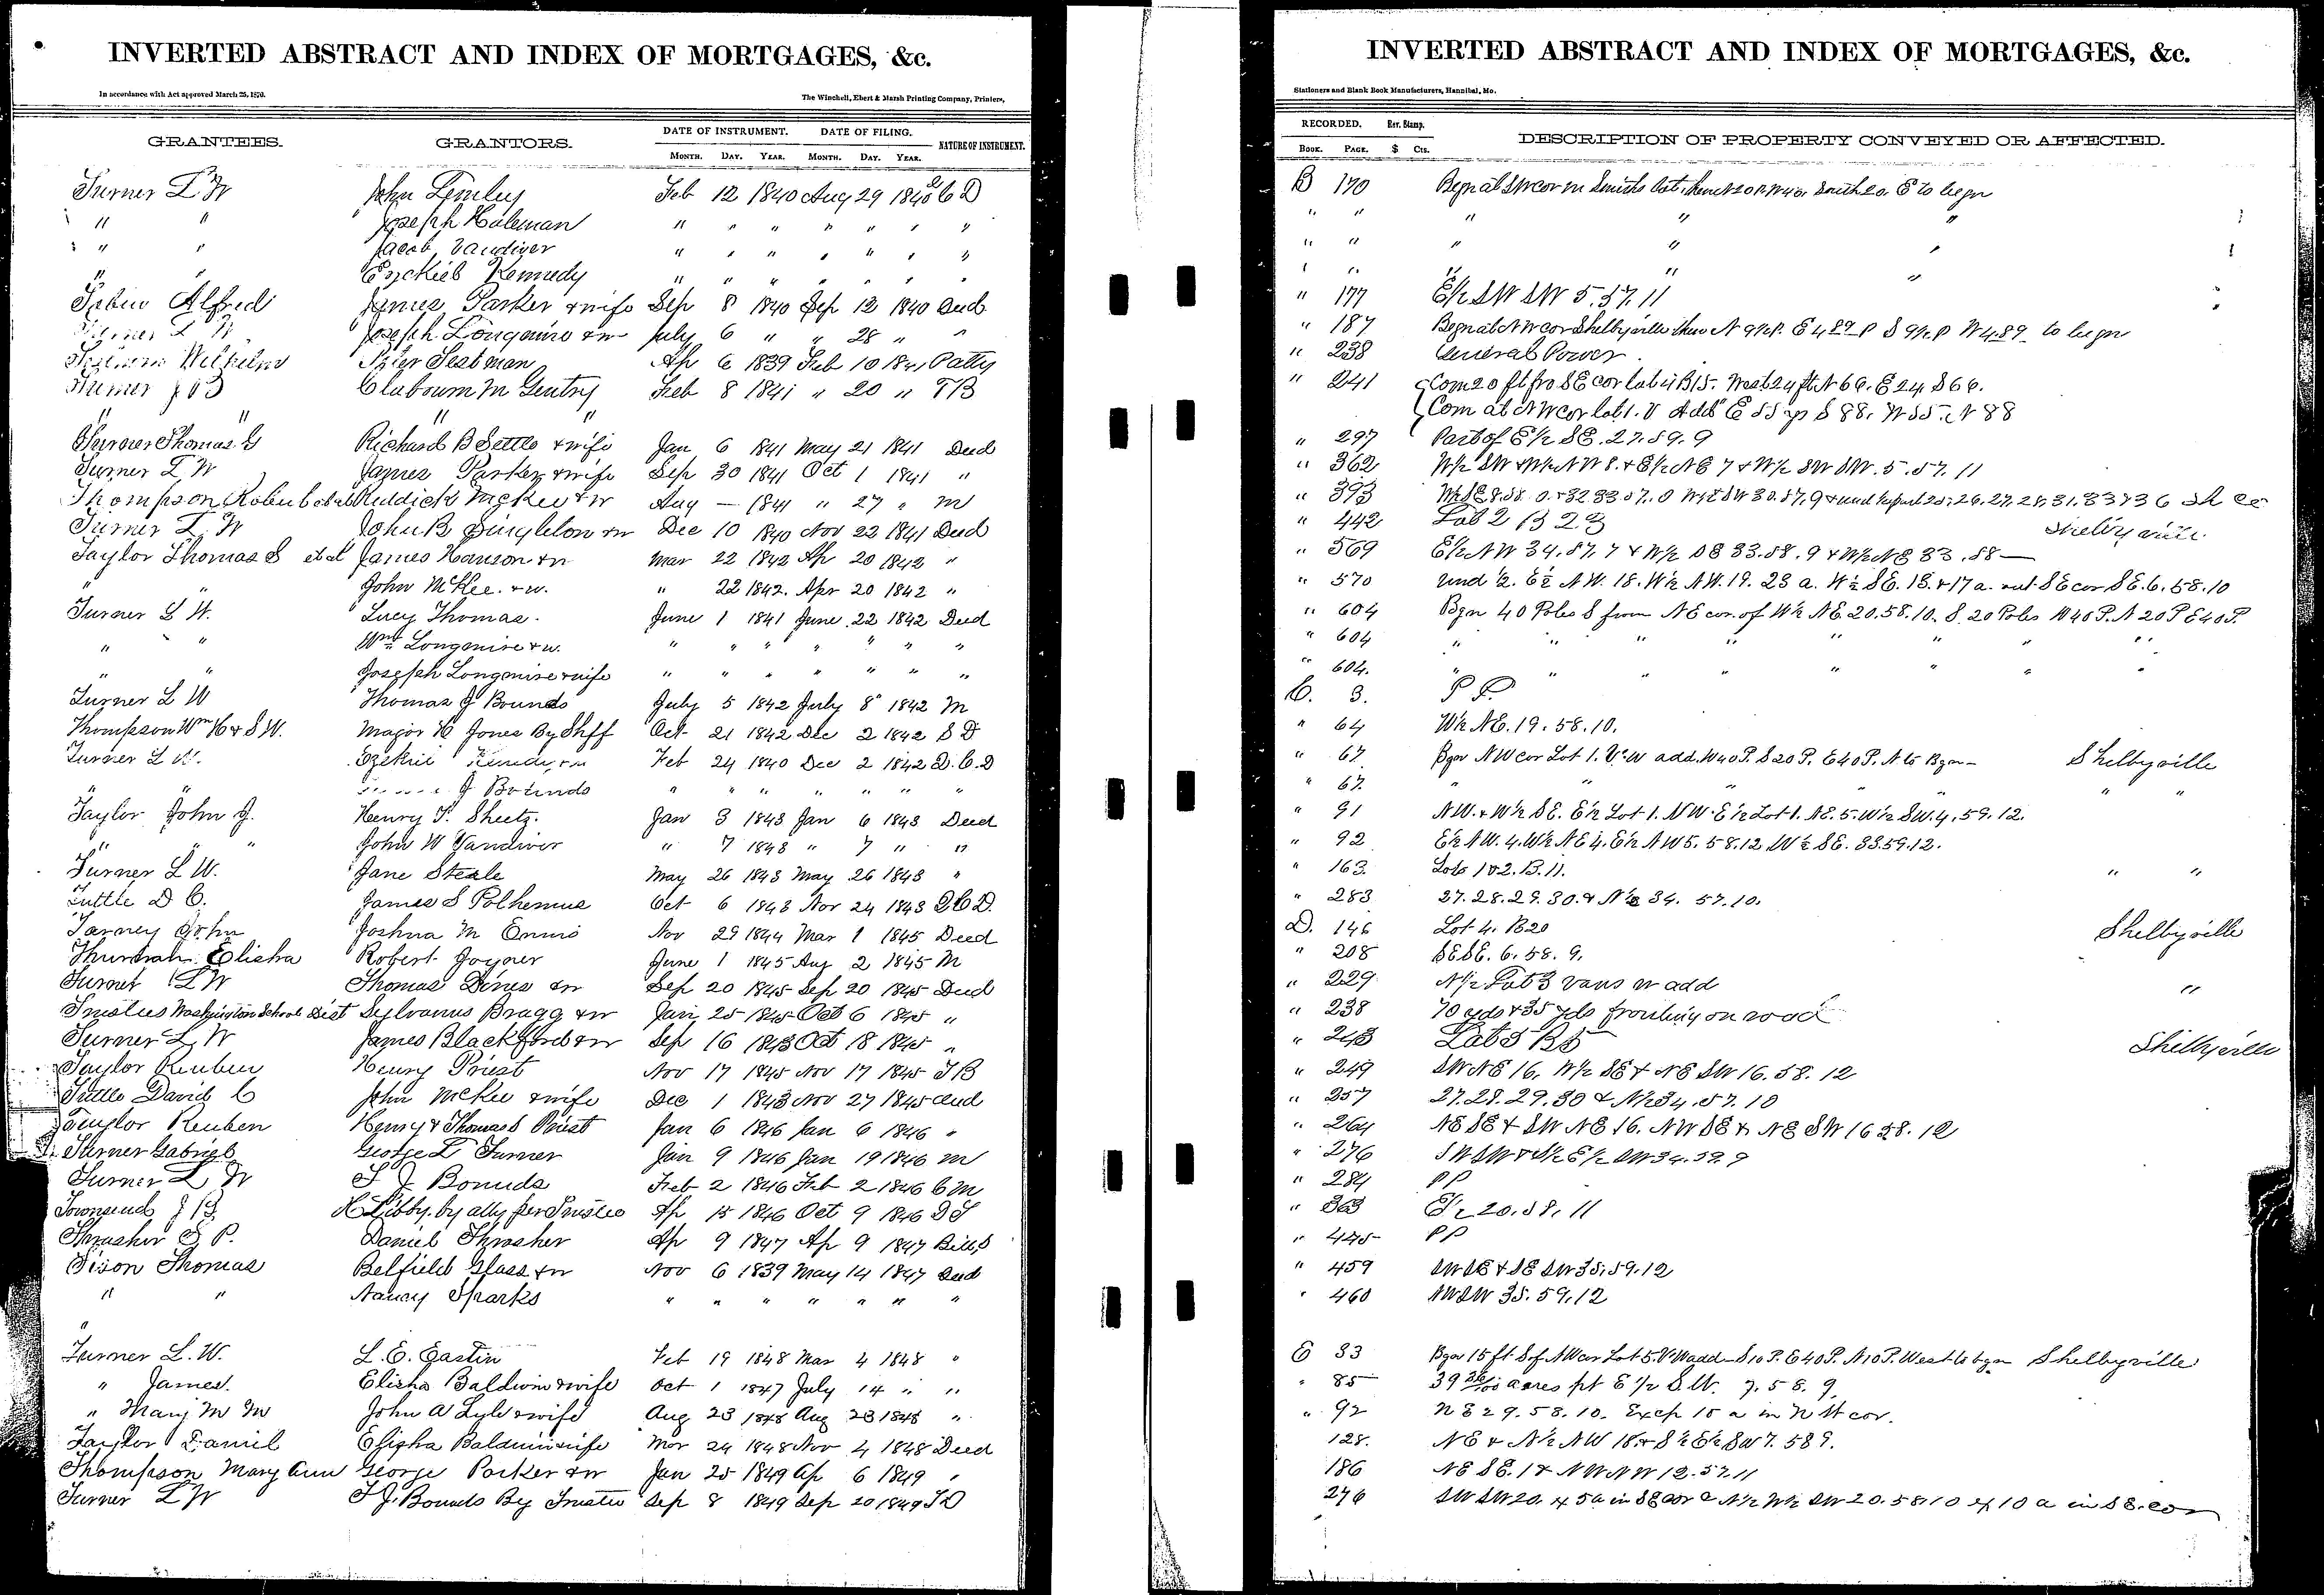 INVERTED ABSTRACT AND INDEX OF MORTGAGES, &c.
In accordance with Act approved March 25, 1870.
The Winchell, Ebert & Marsh Printing Company, Printers,
GRANTEES. GRANTORS. DATE OF INSTRUMENT. DATE OF FILING. NATURE OF INSTRUMENT.
MONTH. DAY. YEAR. MONTH. DAY. YEAR.
Turner L W John Lemley Feb 12 1840 Aug 29 1840 C D
" " Joseph Holeman " " " " " " "
" " Jacob Vandiver " " " " " " "
" " Ezekiel Kennedy " " " " " " "
Tobin Alfred James Parker & wife Sep 8 1840 Sep 12 1840 Deed
Turner L W Joseph Longmire & w July 6 " " 28 " "
Wilhelm Peter Ap 6 1839 Feb 10 1841 Patty
Turner J B Clabourn M Gentry Feb 8 1841 " 20 " T B
" " " "
Thomas G Richard B Settle & wife Jan 6 1841 May 21 1841 Deed
Turner L W James Parker & wife Sep 30 1841 Oct 1 1841 "
Thompson Robert et al Ruddick McKee & w Aug — 1841 " 27 " M
Turner L. W John B Singleton & w Dec 10 1840 Nov 22 1841 Deed
Taylor Thomas S et al James Hanson & w Mar 22 1842 Ap 20 1842 "
" John McKee. & w. " 22 1842. Apr 20 1842 "
Turner L W. Lucy Thomas. June 1 1841 June 22 1842 Deed
" " Wm Longmire & w. " " " " " " "
" " Joseph Longmire & wife " " " " " " "
Turner L W Thomas J Bounds July 5 1842 July 8 1842 M
Thompson Wm H & S W. Major H Jones By Shff Oct 21 1842 Dec 2 1842 S D
Turner L W. Ezekiel Kenedy & w Feb 24 1840 Dec 2 1842 D. C. D
" " J Bounds " " " " " " "
Taylor John J. Henry T. Sheetz. Jan 3 1843 Jan 6 1843 Deed
" " John W Vandiver " 7 1843 " 7 " "
Turner L W. Jane Steele May 26 1843 May 26 1843 "
Tuttle D C. James S Polhemus Oct 6 1843 Nov 24 1843 Q C D.
Tarney John Joshua M Ennis Nov 29 1844 Mar 1 1845 Deed
Elisha Robert Joyner June 1 1845 Aug 2 1845 M
Turner L W Thomas Dines & w Sep 20 1845 Sep 20 1845 Deed
Trustees Washington School Dist Sylvanus Bragg & w Jan 25 1845 Oct 6 1845 "
Turner L. W James Blackford & w Sep 16 1843 Oct 18 1845 "
Taylor Reuben Henry Priest Nov 17 1845 Nov 17 1845 T B
Tuttle David C John McKee & wife Dec 1 1843 Nov 27 1845 Deed
Taylor Reuben Henry & Thomas S Priest Jan 6 1846 Jan 6 1846 "
Turner Gabriel George L Turner Jan 9 1846 Jan 19 1846 M
Turner L W T J. Bounds Feb 2 1846 Feb 2 1846 C M
Townsend J B H Libby. by atty per Trustee Ap 15 1846 Oct 9 1846 D T
Thrasher S P. Daniel Thrasher Ap 9 1847 Ap 9 1847 Bill S
Tison Thomas Belfield Glass & w Nov 6 1839 May 14 1847 Deed
" " Nancy Sparks " " " " " " "
"
Turner L. W. L. E. Eastin Feb 19 1848 Mar 4 1848 "
" James. Elisha Baldwin & wife Oct 1 1847 July 14 " "
" Mary M M John A Lyle & wife Aug 23 1848 Aug 23 1848 "
Taylor Daniel Elisha Baldwin & wife Mar 24 1848 Nov 4 1848 Deed
Thompson Mary Ann George Parker & w Jan 25 1849 Ap 6 1849 "
Turner L W T J. Bounds By Trustee Sep 8 1849 Sep 20 1849 T D
INVERTED ABSTRACT AND INDEX OF MORTGAGES, &c.
Stationers and Blank Book Manufacturers, Hannibal, Mo.
RECORDED. Rev. Stamp. DESCRIPTION OF PROPERTY CONVEYED OR AFFECTED.
BOOK. PAGE. $ Cts.
B 170 Begn at SW cor to begn
" " " " "
" " " " "
" " " " "
" 177 E½ SW SW 5. 57. 11
" 187 Begn at NW cor Shelbyville to begn
" 238 General Power
" 241 Com 20 ft fro SE cor lot 4 B 15. West 24 ft N 66. E 24 S 66.
Com at NW cor lot 1. V Add E 55 S 88. W 55. N 88
" 297 Part of E½ SE. 27. 59. 9
" 362 W½ SW & W½ NW 8. & E½ NE 7 & W½ SW SW. 5. 57. 11
" 393
" 442 Lot 2 B 23 Shelbyville
" 569 E½ NW 34. 57. 7 & W½ SE 33. 58. 9 & W½ NE 33. 58 —
" 570 und ½. E½ NW. 18. W½ NW. 19. 23 a. W½ SE. 18. & 17 a. out SE cor SE. 6. 58. 10
" 604 Bgn 40 Poles S from NE cor. of W½ NE. 20. 58. 10. S. 20 Poles W 40 P. N 20 P E 40 P.
" 604 " " " " " " "
" 604. " " " " " " "
C. 3. P P.
" 64 W½ NE. 19. 58. 10.
" 67 Bgn NW cor Lot 1. V. W add. W 40 P. S 20 P. E 40 P. N to Bgn — Shelbyville
" 67. " " " "
" 91 NW. & W½ SE. E½ Lot 1. NW. E½ Lot 1. NE. 5. W½ SW. 4. 59. 12.
" 92 E½ NW. 4. W½ NE 4. E½ NW 5. 58. 12. W½ SE. 33. 59. 12.
" 163. Lots 1 & 2. B. 11. " "
" 283 27. 28. 29. 30. & N½ 34. 57. 10.
D. 146 Lot 4. B 20 Shelbyville
" 208 SE SE. 6. 58. 9.
" 229 N½ Lot 3 Vans W add "
" 238 70 yds & 35 yds fronting on road
" 243 Lot 5 B 5 Shelbyville
" 249 SW NE 16. W½ SE & NE SW 16. 58. 12
" 257 27. 28. 29. 30 & N½ 34. 57. 10
" 264 NE SE & SW NE 16. NW SE & NE SW 16 58. 12
" 276
" 284 P P
" 363 20. 58. 11
" 445 P P
" 459 SW SE & SE SW 35. 59. 12
" 460 NW SW 35. 59. 12
E 33 Bgn 15 ft S of NW cor Lot 5. V. W add — S 10 P. E 40 P. N 10 P. West to bgn Shelbyville
" 85 39 36/100 acres pt E ½ S W. 7. 58. 9.
" 92 N E 29. 58. 10. Excp 10 a in N W cor.
128. NE & N½ NW 18. & S½ E½ SW 7. 58 9.
186 NE SE. 1 & NW NW 12. 57. 11
276 SW SW 20. & 5 a in SE cor W½ SW 20. 58. 10 10 a in S E. cor